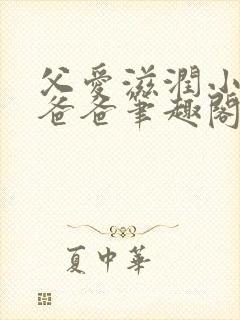 父愛滋潤小
爸爸筆趣閣
夏中華